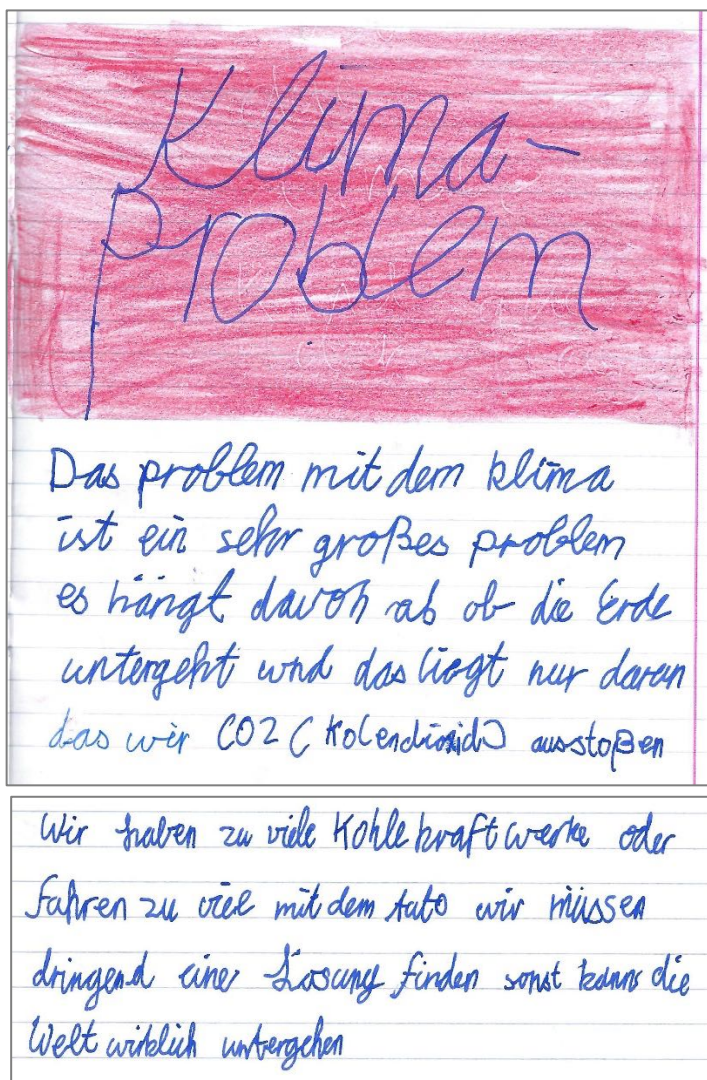 Klima-
Problem
Das problem mit dem klima
ist ein sehr großes problem
es hängt davon ab ob die Erde
untergeht und das liegt nur daran
das wir CO2 (Kolendioxid) ausstoßen
Wir haben zu viele Kohlekraftwerke oder
fahren zu viel mit dem Auto wir müssen
dringend eine Lösung finden sonst kann die
Welt wirklich untergehen